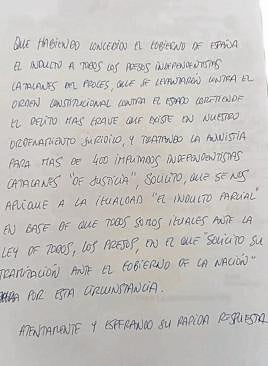 QUE HABIENDO CONCEDIDO EL GOBIERNO DE ESPAÑA
EL INDULTO A TODOS LOS PRESOS INDEPENDENTISTAS
CATALANES DEL PROCES, QUE SE LEVANTARÓN CONTRA EL
ORDEN CONSTITUCIONAL CONTRA EL ESTADO COMETIENDO
EL DELITO MAS GRAVE QUE EXISTE EN NUESTRO
ORDENAMIENTO JURIDICO, Y TRATANDO LA AMNISTIA
PARA MAS DE 400 IMPUTADOS INDEPENDENTISTAS
CATALANES "DE JUSTICIA", SOLICITO, QUE SE NOS
APLIQUE A LA IGUALDAD "EL INDULTO PARCIAL"
EN BASE DE QUE TODOS SOMOS IGUALES ANTE LA
LEY DE TODOS, LOS PRESOS, EN EL QUE "SOLICITO SU
TRAMITACIÓN ANTE EL GOBIERNO DE LA NACIÓN"
POR ESTA CIRCUNSTANCIA.
ATENTAMENTE Y ESPERANDO SU RAPIDA RESPUESTA